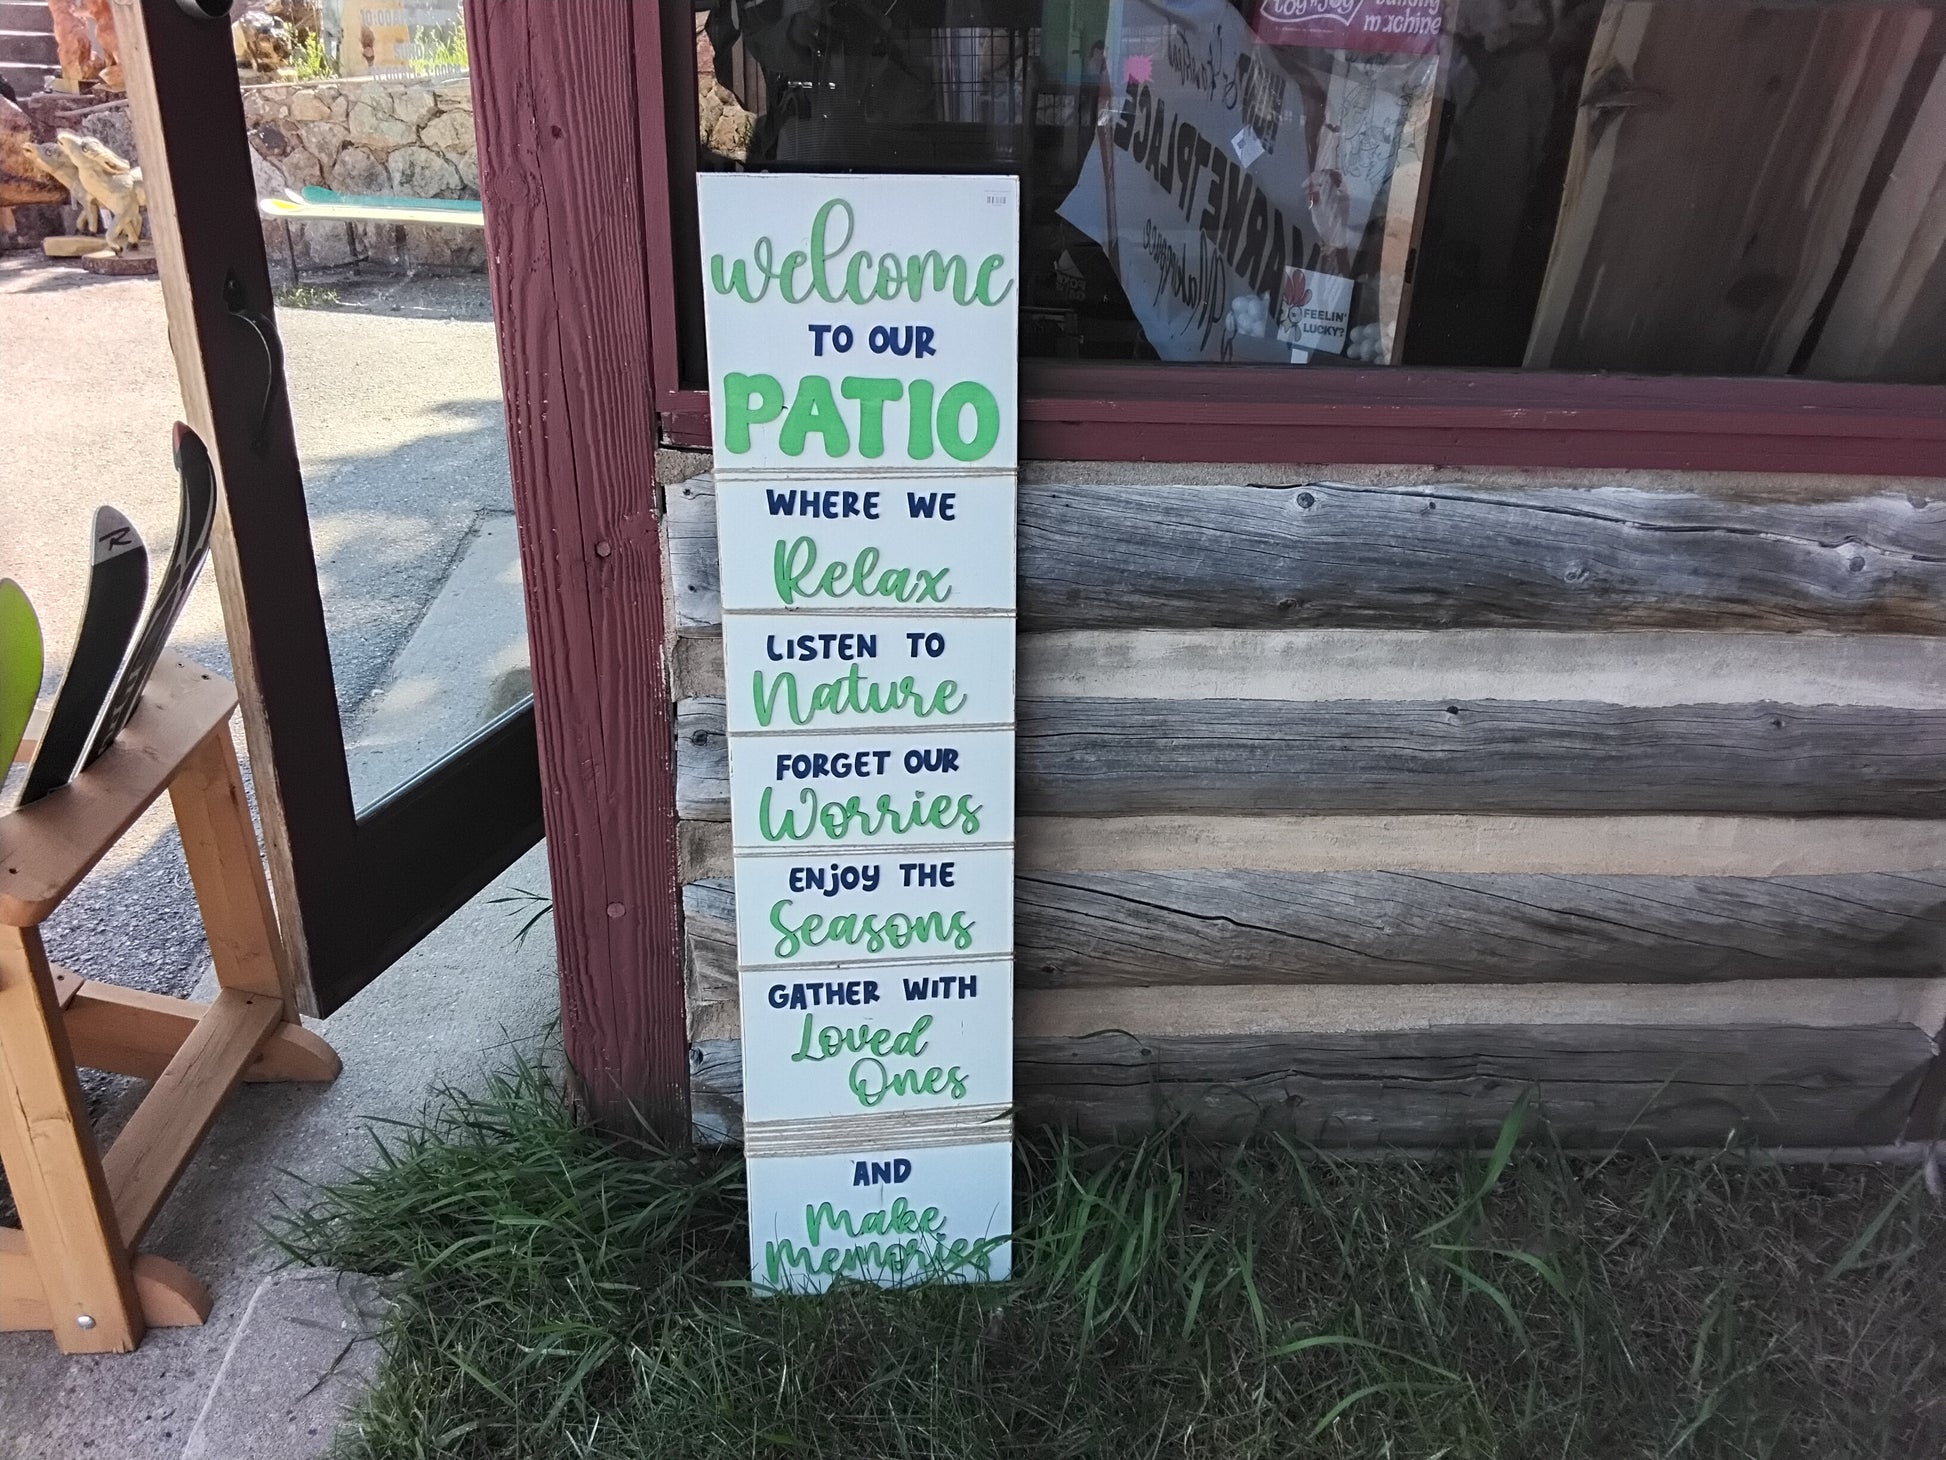 welcome
TO OUR
PATIO
WHERE WE
Relax
LISTEN TO
Nature
FORGET OUR
Worries
ENJOY THE
Seasons
GATHER WITH
Loved
Ones
AND
Make
Memories
machine
MARKETPLACE
Makerspace
FEELIN'
LUCKY?
R